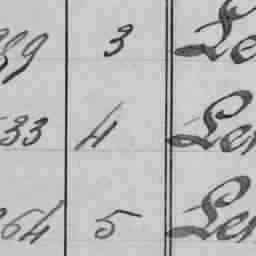 89 3 Le
33 4 Le
64 5 Le